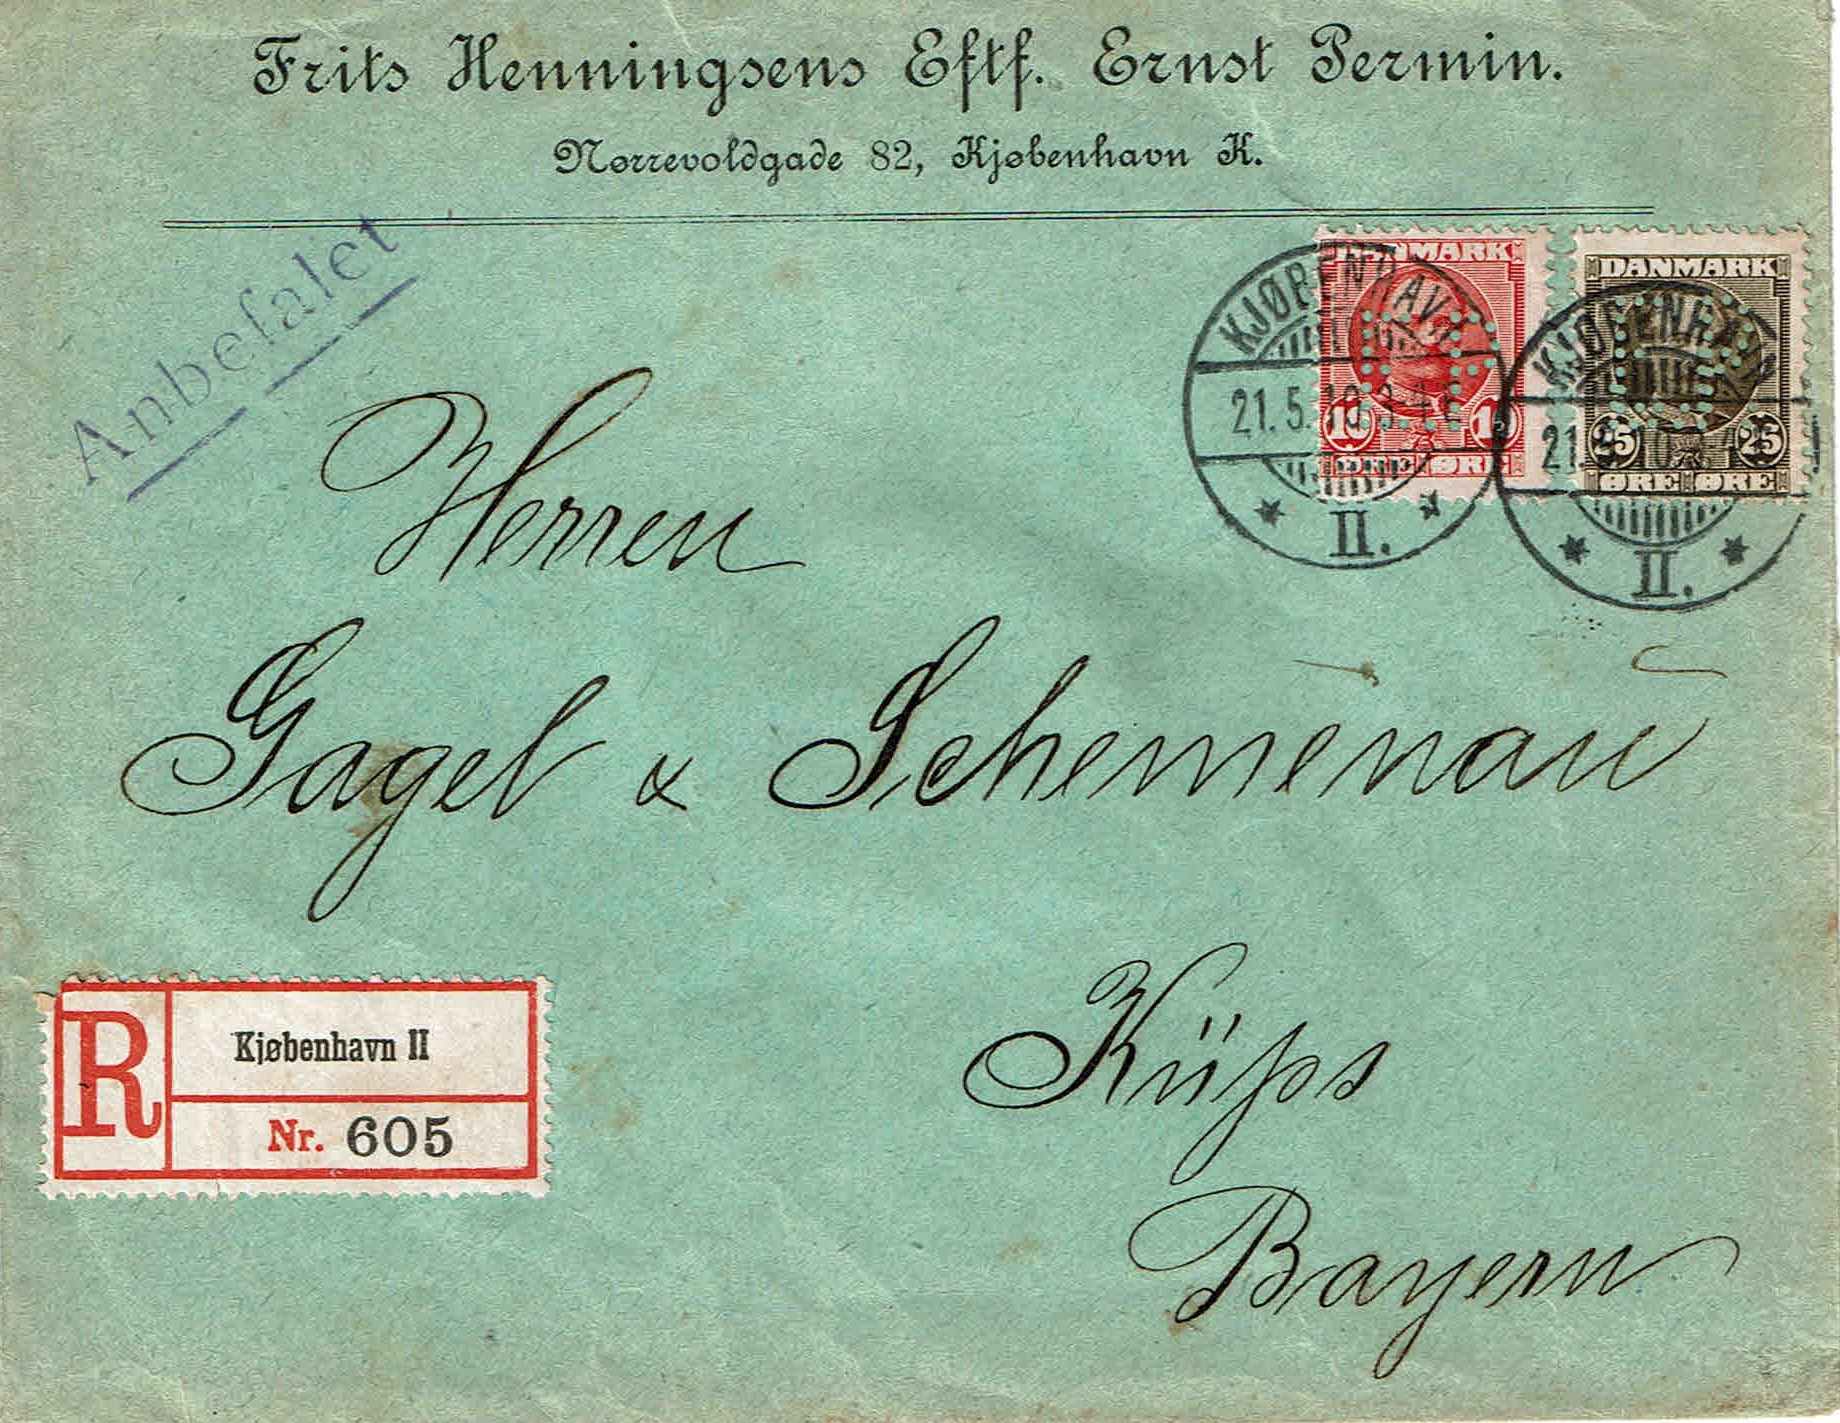 Frits Henningsens Eftf. Ernst Permin.
Nørrevoldgade 82, Kjøbenhavn K.
Anbefalet
DANMARK
10 10
ØRE ØRE
DANMARK
25 25
ØRE ØRE
KJØBENHAVN
21.5.10.3-4E
II.
KJØBENHAVN
21.5.10.3-4E
II.
Herren
Gagel & Schemenau
Küps
Bayern
R
Kjøbenhavn II
Nr. 605